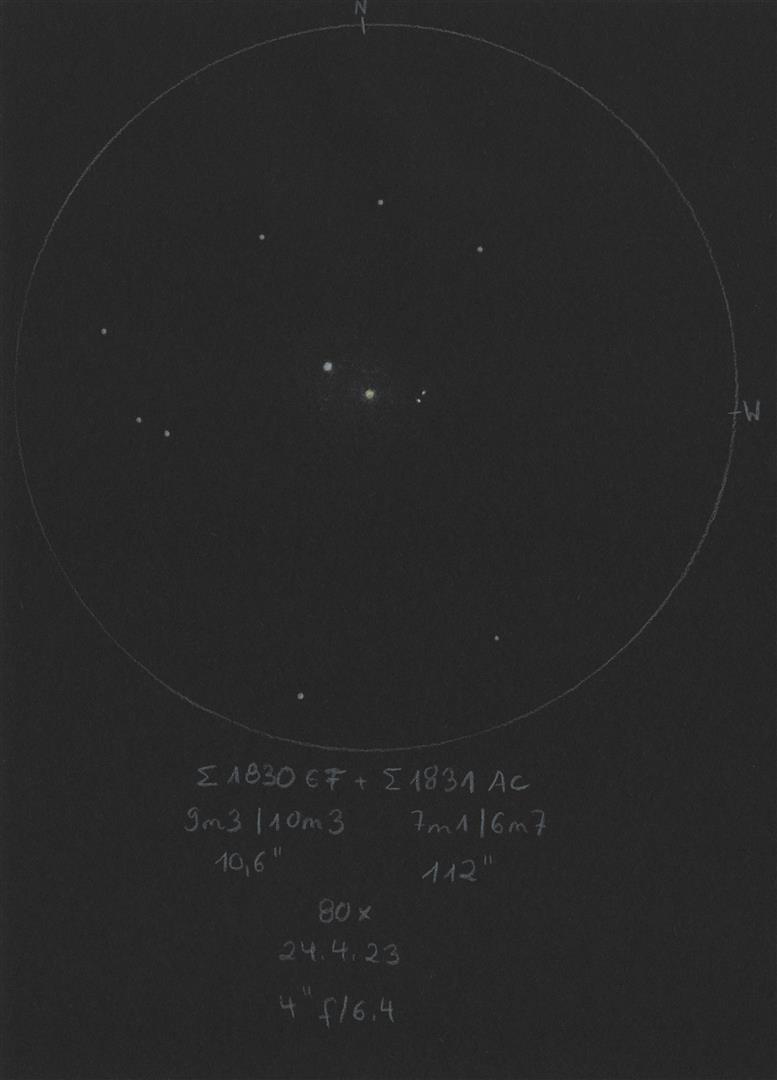 N
W
Σ 1830 EF + Σ 1831 AC
9m3 | 10m3 7m1 | 6m7
10,6" 112"
80x
24.4.23
4" f/6.4